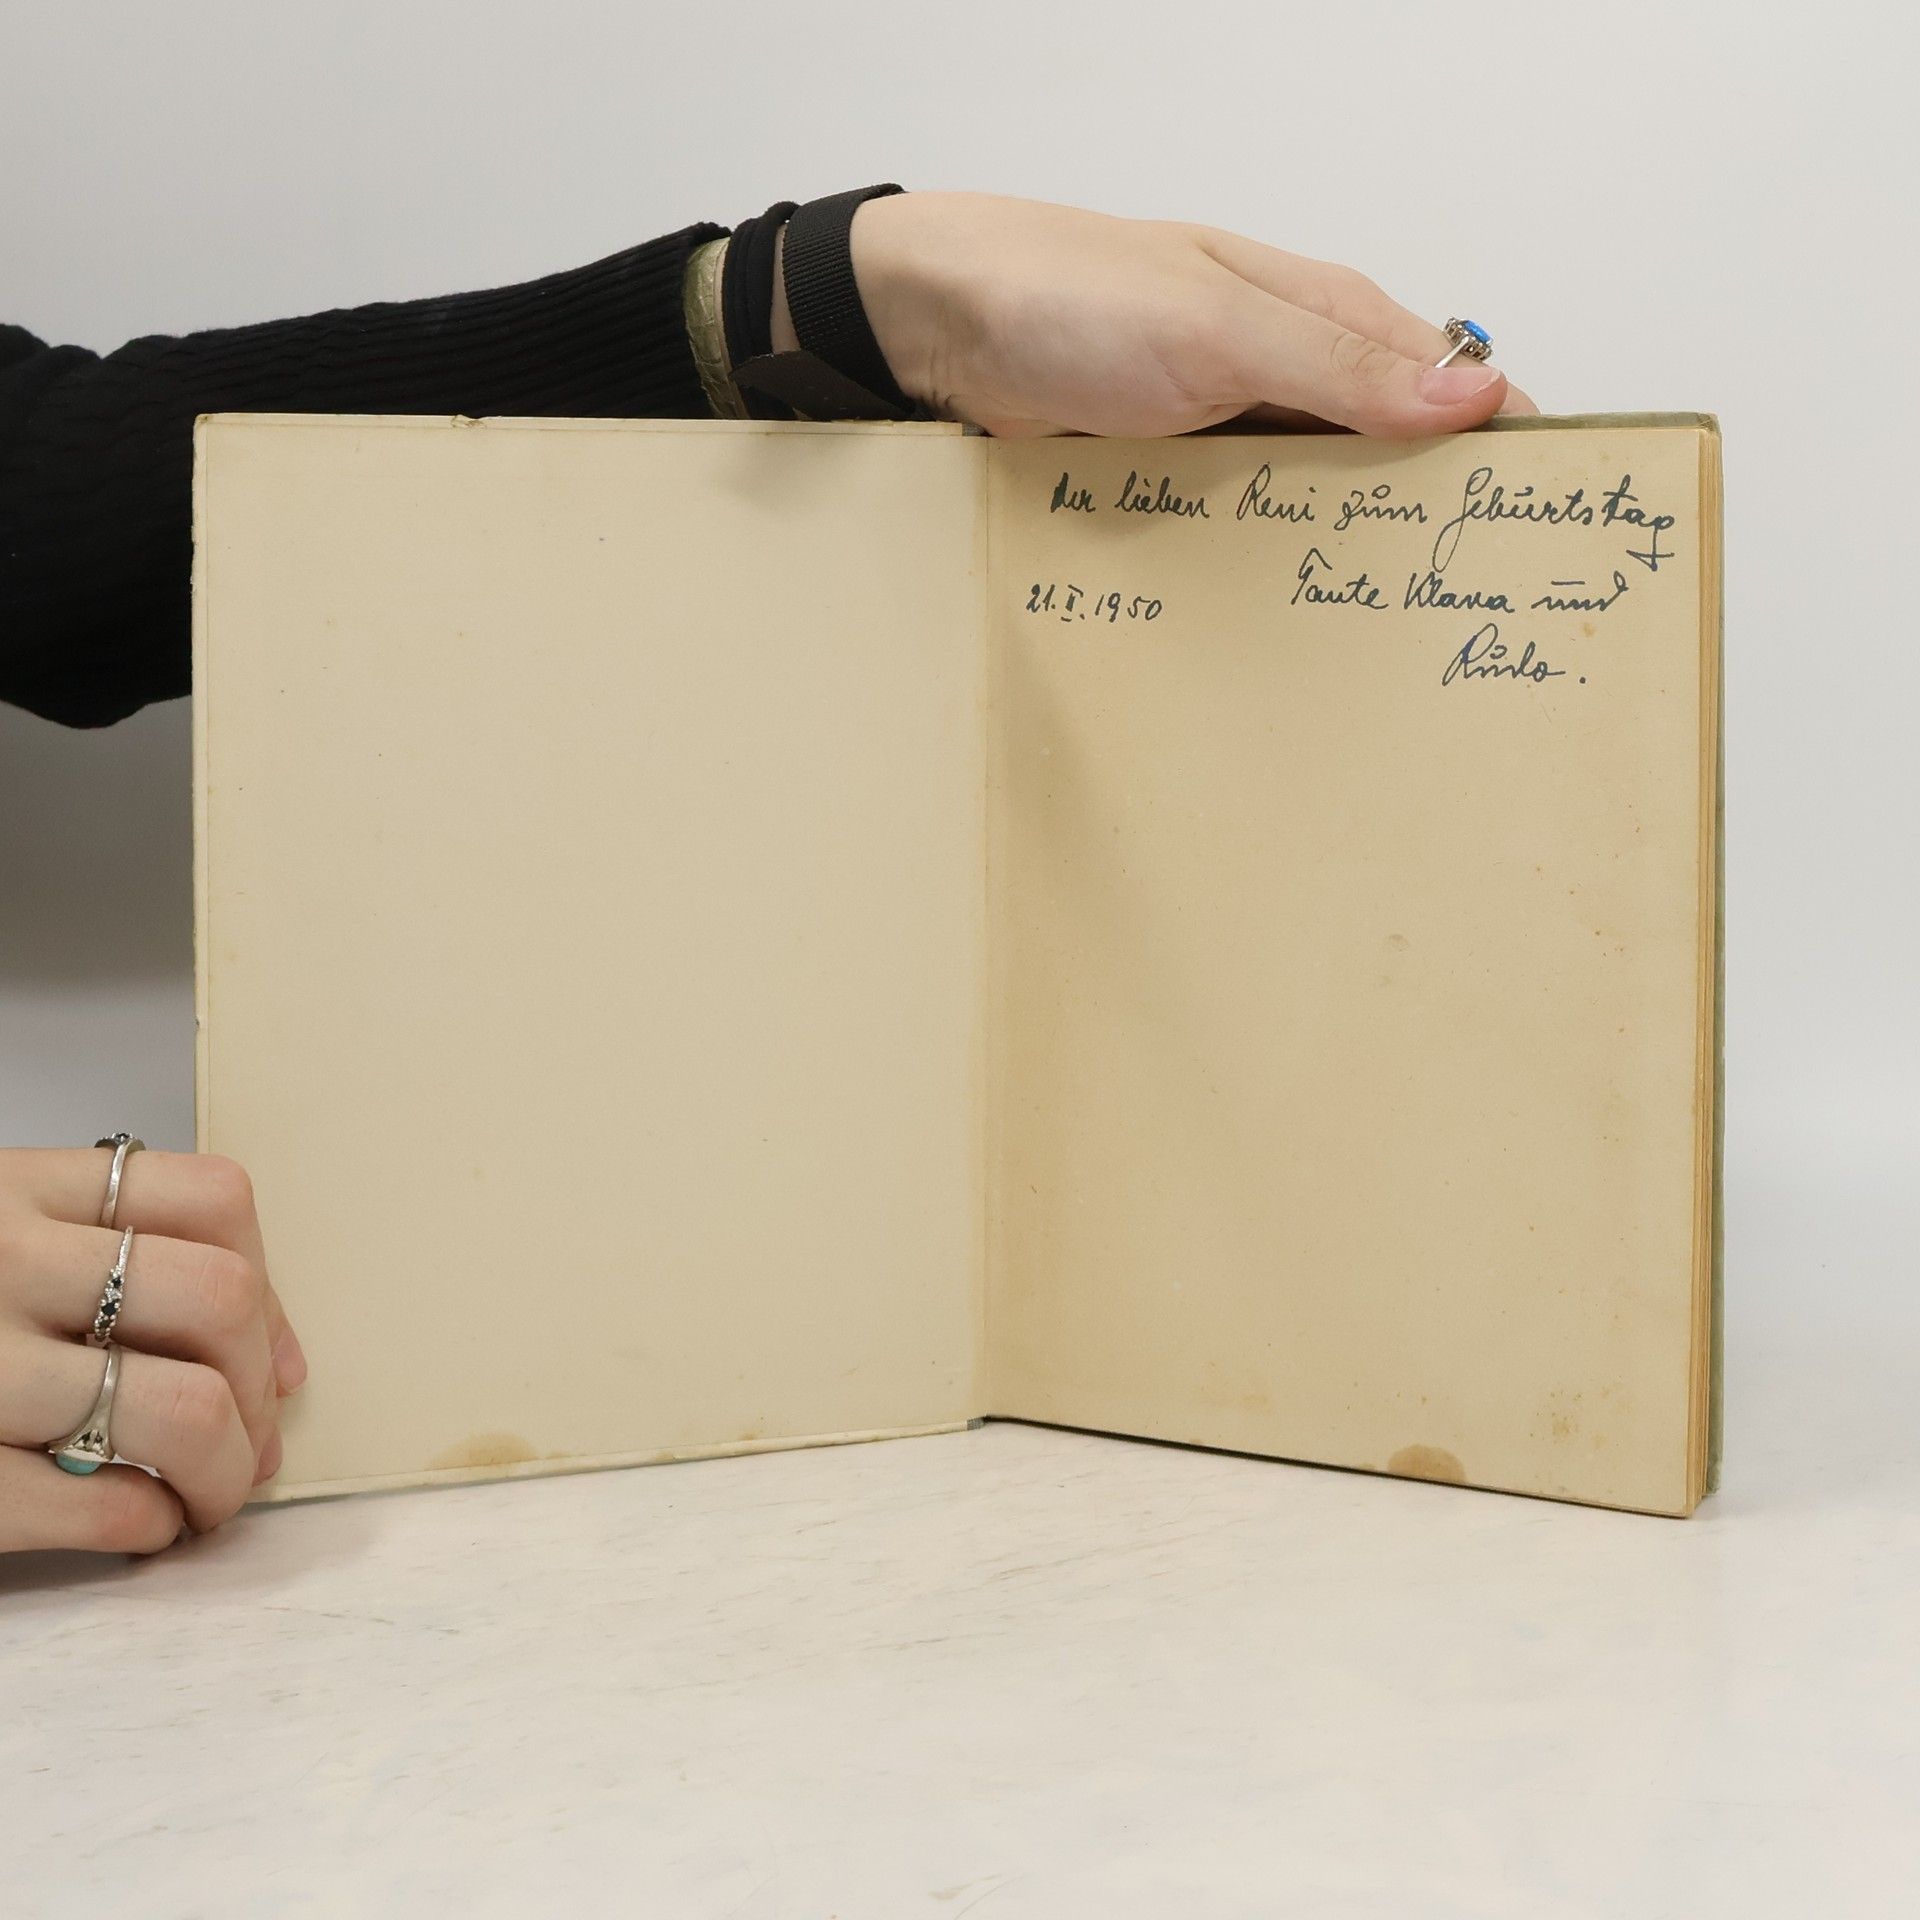 der lieben Reni zum Geburtstag
21.II.1950 Tante Klara und
Rudo.